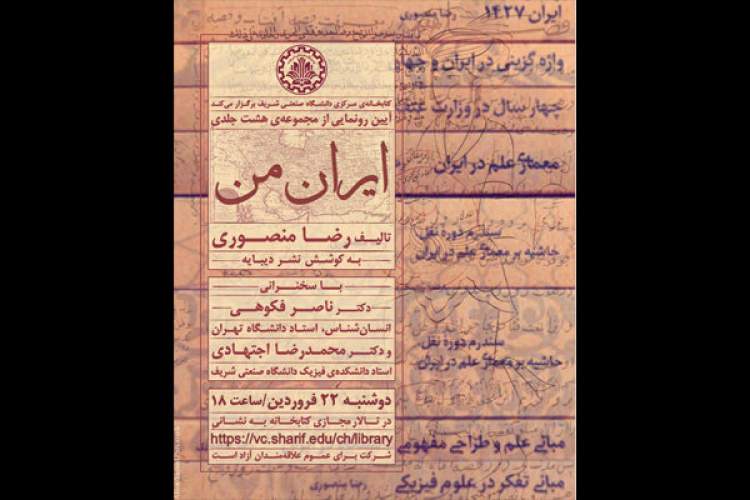 کتابخانه‌ی مرکزی دانشگاه صنعتی شریف برگزار می‌کند
آیین رونمایی از مجموعه‌ی هشت جلدی
ایران من
تالیف رضا منصوری
به کوشش نشر دیبایه
با سخنرانی
دکتر ناصر فکوهی
انسان‌شناس، استاد دانشگاه تهران
و دکتر محمدرضا اجتهادی
استاد دانشکده‌ی فیزیک دانشگاه صنعتی شریف
دوشنبه ۲۲ فروردین/ساعت ۱۸
در تالار مجازی کتابخانه به نشانی
https://vc.sharif.edu/ch/library
شرکت برای عموم علاقه‌مندان آزاد است
ایران ۱۴۲۷ رضا منصوری
واژه گزینی در ایران و جها
چهار سال در وزارت عتف
معمای علم در ایران
سندرم دوره نقل
حاشیه بر معمای علم در ایران
سندرم دوره نقل
حاشیه بر معمای علم در ایران
مبانی علم و طراحی مفهومی
مبانی تفکر در علوم فیزیکی رضا منصوری